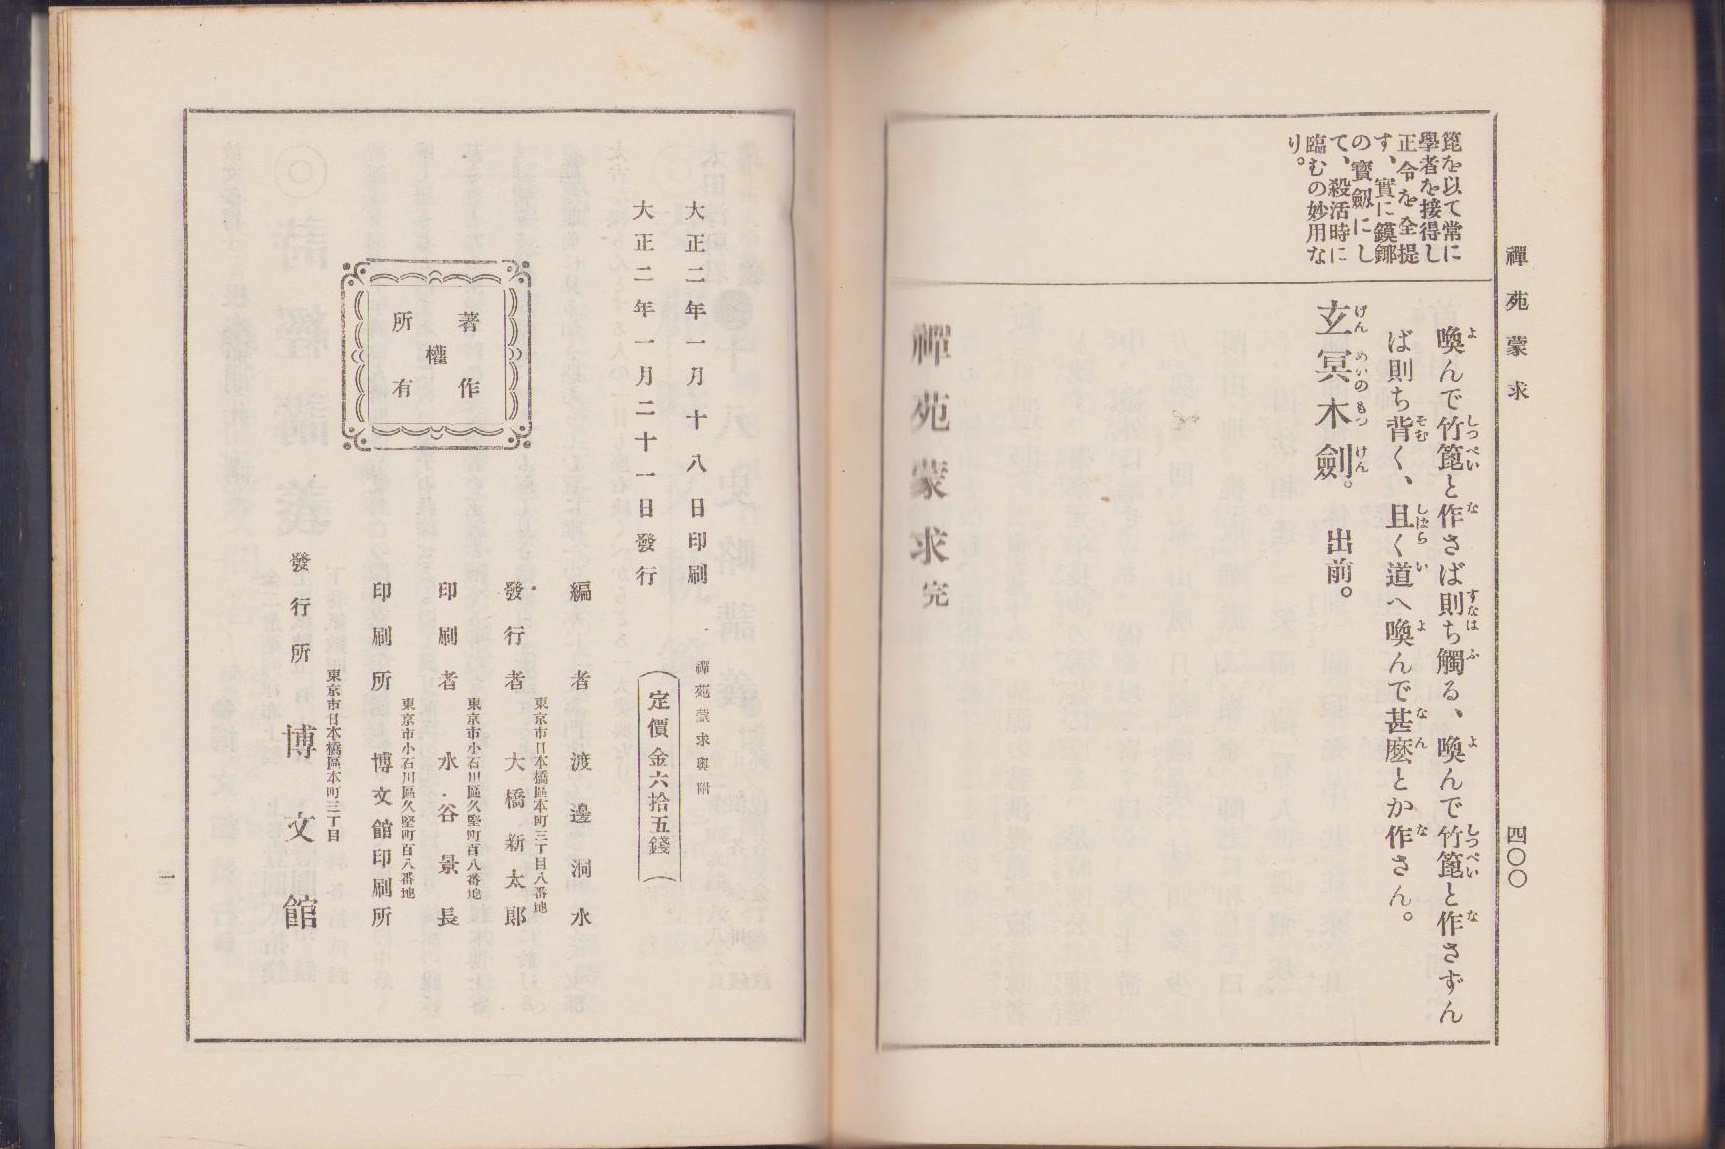 禪苑蒙求
四〇〇
篦を以て常に
學者を接得し
正令を全提
す、實に鏌鎁
の寶劔にし
て、殺活時に
臨むの妙用な
り。
喚んで竹篦と作さば則ち觸る、喚んで竹篦と作さずん
ば則ち背く、且く道へ喚んで甚麽とか作さん。
玄冥木劍。 出前。
禪苑蒙求 完
大正二年一月十八日印刷
大正二年一月二十一日發行
禪苑蒙求與附
定價金六拾五錢
著作
權
所有
編者 渡邊洞水
東京市日本橋區本町三丁目八番地
發行者 大橋新太郎
東京市小石川區久堅町百八番地
印刷者 水谷景長
東京市小石川區久堅町百八番地
印刷所 博文館印刷所
東京市日本橋區本町三丁目
發行所 博文館
一